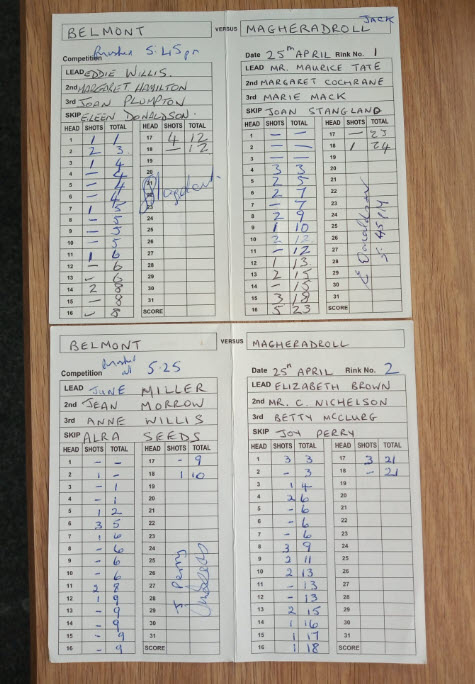 JACK
BELMONT VERSUS MAGHERADROLL
Competition
Date 25th APRIL Rink No. 1
LEAD EDDIE WILLIS.
LEAD MR. MAURICE TATE
2nd MARGARET HAMILTON
2nd MARGARET COCHRANE
3rd JOAN PLUMPTON
3rd MARIE MACK
SKIP EILEEN DONALDSON.
SKIP JOAN STANGLAND
HEAD SHOTS TOTAL HEAD SHOTS TOTAL
1 1 1 17 4 12
2 2 3 18 - 12
3 1 4 19
4 - 4 20
5 - 4 21
6 - 4 22
7 1 5 23
8 - 5 24
9 - 5 25
10 - 5 26
11 1 6 27
12 - 6 28
13 - 6 29
14 2 8 30
15 - 8 31
16 - 8 SCORE
HEAD SHOTS TOTAL HEAD SHOTS TOTAL
1 - - 17 - 23
2 - - 18 1 24
3 - - 19
4 3 3 20
5 2 5 21
6 2 7 22
7 - 7 23
8 2 9 24
9 1 10 25
10 2 12 26
11 - 12 27
12 1 13 28
13 2 15 29
14 - 15 30
15 3 18 31
16 5 23 SCORE
BELMONT VERSUS MAGHERADROLL
Competition 5.25
Date 25th APRIL Rink No. 2
LEAD JUNE MILLER
LEAD ELIZABETH BROWN
2nd JEAN MORROW
2nd MR. C. NICHELSON
3rd ANNE WILLIS
3rd BETTY McCLURG
SKIP ALRA SEEDS
SKIP JOY PERRY
HEAD SHOTS TOTAL HEAD SHOTS TOTAL
1 - - 17 - 9
2 1 - 18 1 10
3 - 1 19
4 - 1 20
5 1 2 21
6 3 5 22
7 1 6 23
8 - 6 24
9 - 6 25
10 - 6 26
11 2 8 27
12 1 9 28
13 - 9 29
14 - 9 30
15 - 9 31
16 - 9 SCORE
J Perry
HEAD SHOTS TOTAL HEAD SHOTS TOTAL
1 3 3 17 3 21
2 - 3 18 - 21
3 1 4 19
4 2 6 20
5 - 6 21
6 - 6 22
7 - 6 23
8 3 9 24
9 2 11 25
10 2 13 26
11 - 13 27
12 - 13 28
13 2 15 29
14 1 16 30
15 1 17 31
16 1 18 SCORE